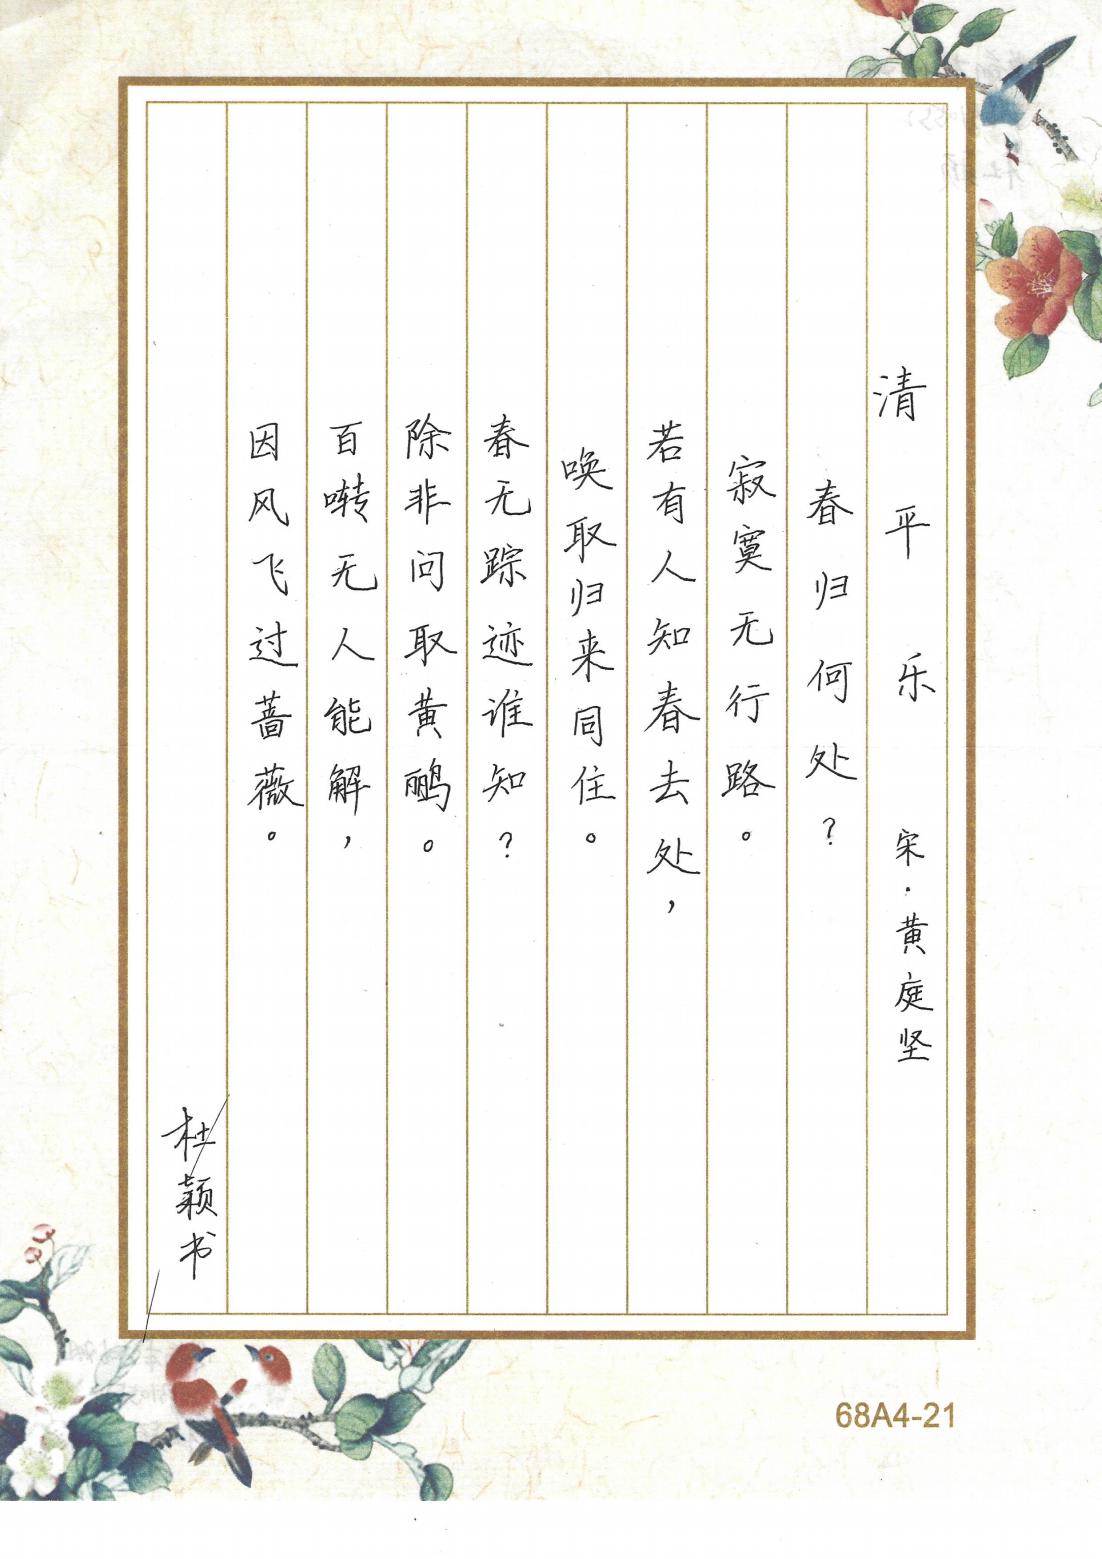 清平乐 宋·黄庭坚
春归何处？
寂寞无行路。
若有人知春去处，
唤取归来同住。
春无踪迹谁知？
除非问取黄鹂。
百啭无人能解，
因风飞过蔷薇。
杜颖书
68A4-21